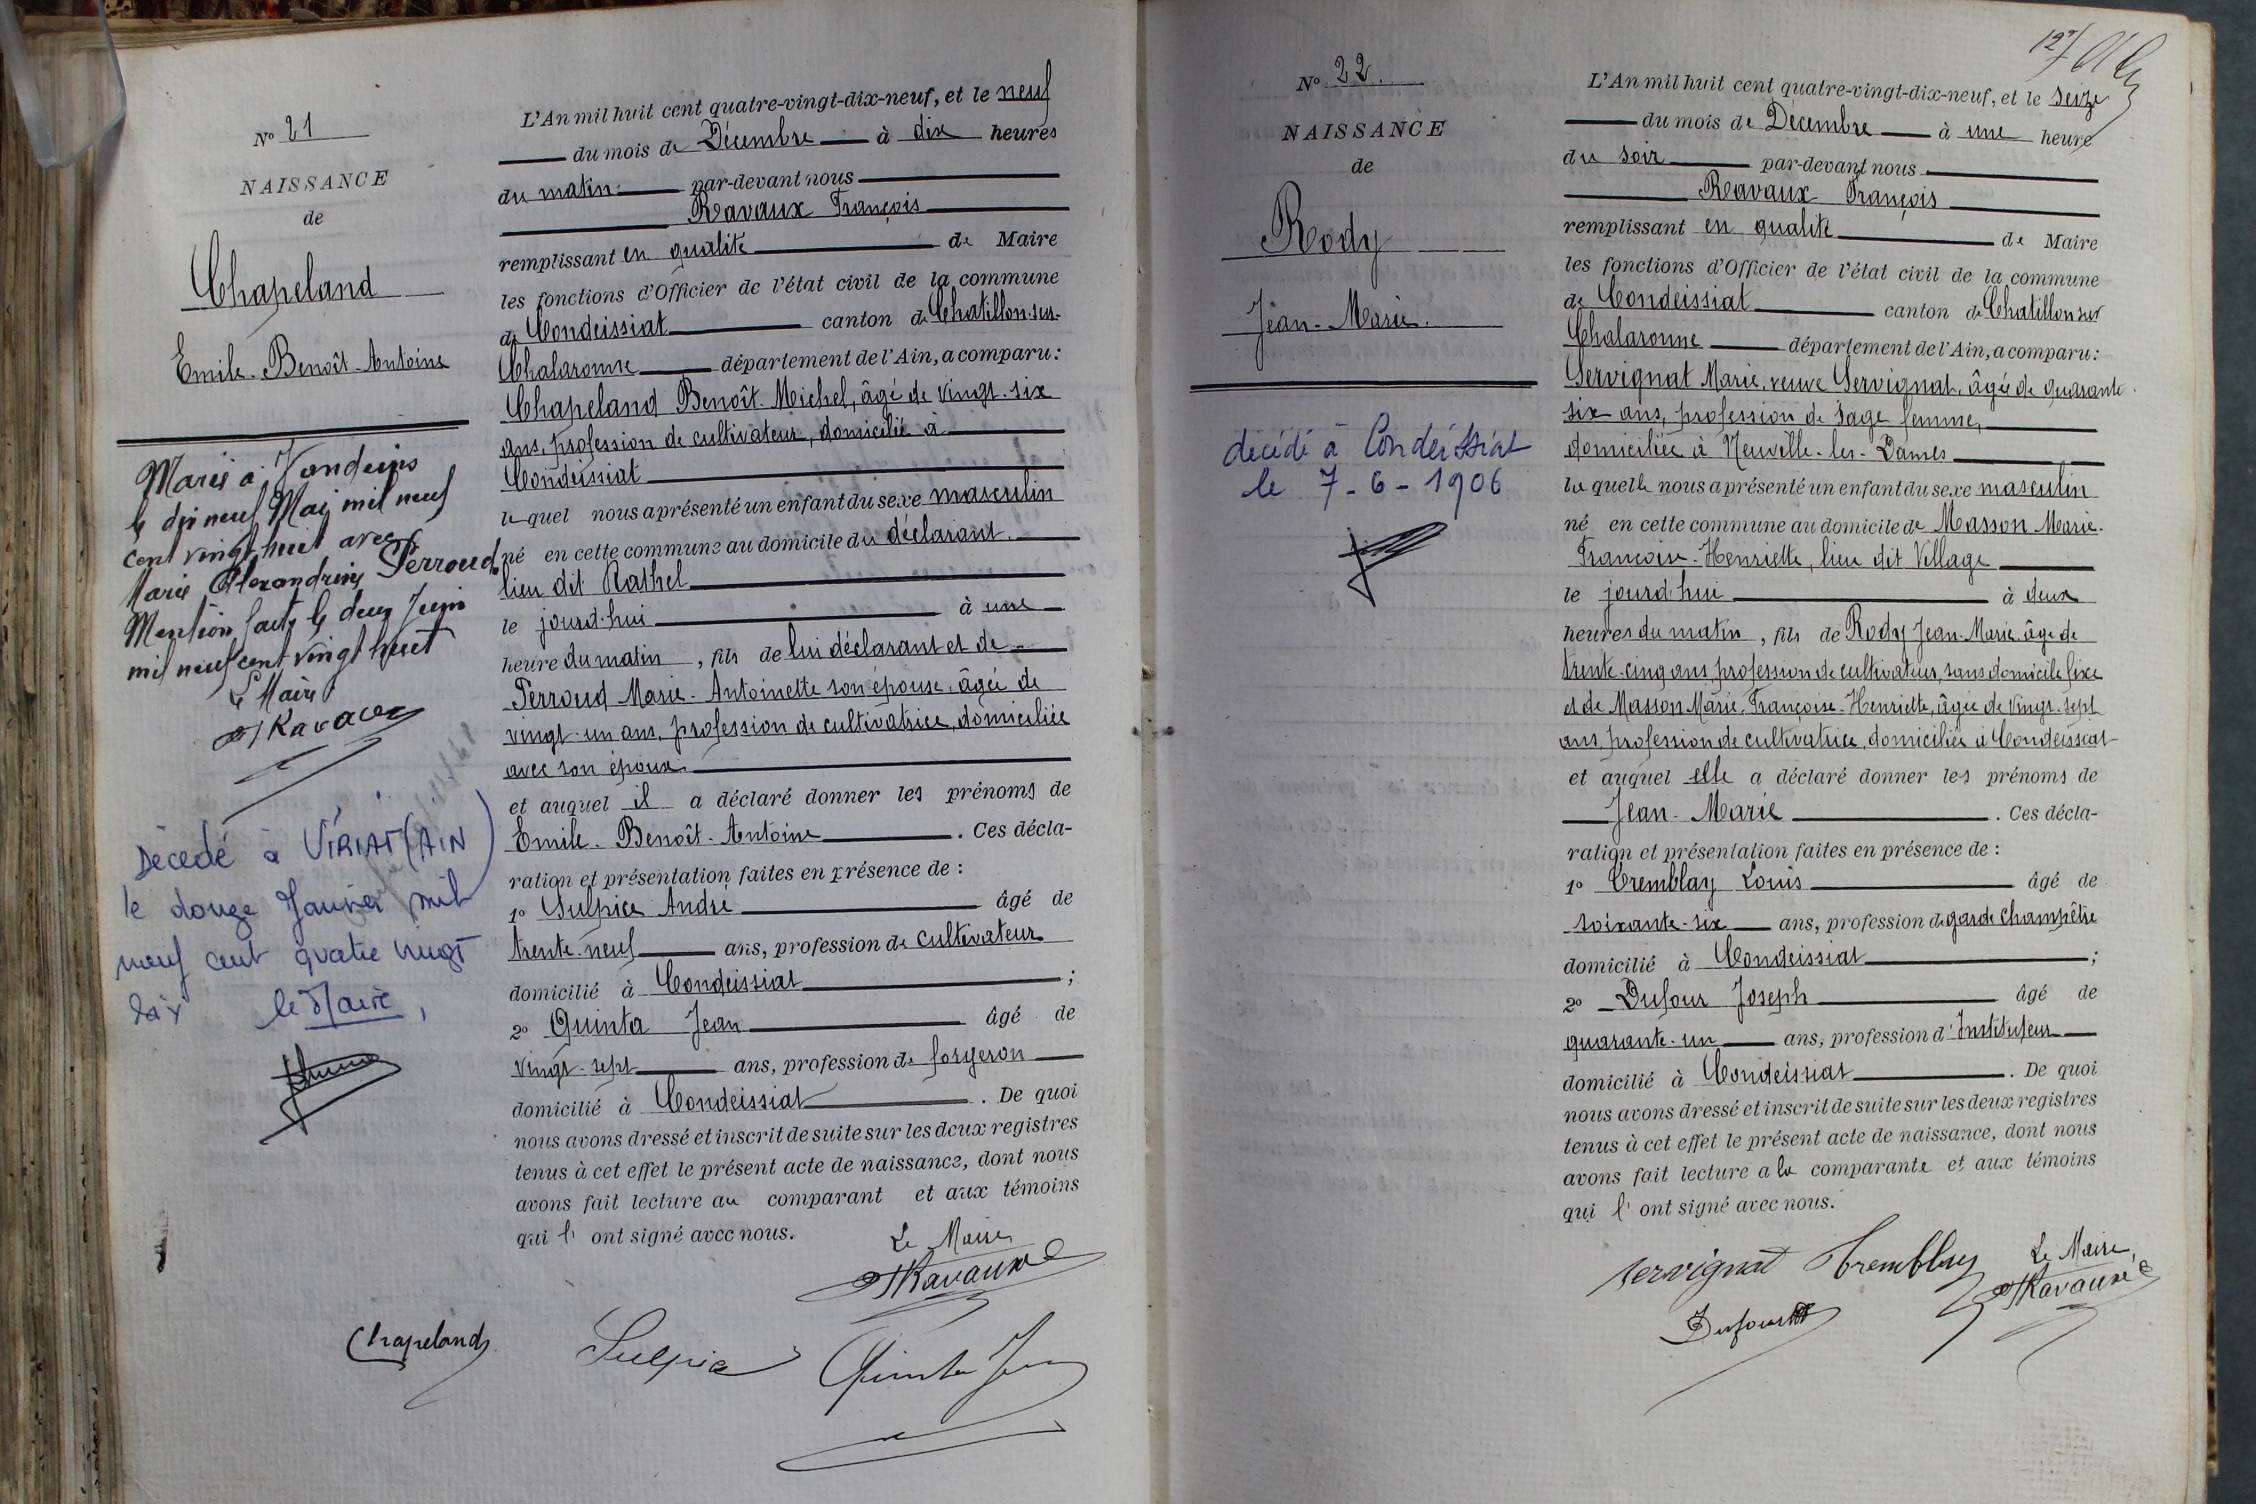 N° 21
NAISSANCE
de
Chapeland
Emile-Benoît-Antoine
Marié à Vandeins
le dix neuf Mai mil neuf
cent vingt huit avec
Marie Alexandrine Perroud.
Mention faite le deux Juin
mil neuf cent vingt huit
Le Maire
Ravaux
Décédé à VIRIAT (AIN)
le douze Janvier mil
neuf cent quatre vingt
dix le Maire,
L'An mil huit cent quatre-vingt-dix-neuf, et le neuf
du mois de Décembre à dix heures
du matin par-devant nous
Ravaux François
remplissant en qualité de Maire
les fonctions d'Officier de l'état civil de la commune
de Condeissiat canton de Chatillon-sur-
Chalaronne département de l'Ain, a comparu :
Chapeland Benoît-Michel, âgé de vingt-six
ans, profession de cultivateur, domicilié à
Condeissiat
lequel nous a présenté un enfant du sexe masculin
né en cette commune au domicile du déclarant.
lieu dit Rathel
le jourd'hui à une
heure du matin, fils de lui déclarant et de
Perroud Marie-Antoinette son épouse, âgée de
vingt-un ans, profession de cultivatrice, domiciliée
avec son époux.
et auquel il a déclaré donner les prénoms de
Emile-Benoît-Antoine. Ces décla-
ration et présentation faites en présence de :
1° Sulpice André âgé de
trente-neuf ans, profession de cultivateur
domicilié à Condeissiat ;
2° Quinta Jean âgé de
vingt-sept ans, profession de forgeron
domicilié à Condeissiat. De quoi
nous avons dressé et inscrit de suite sur les deux registres
tenus à cet effet le présent acte de naissance, dont nous
avons fait lecture au comparant et aux témoins
qui l'ont signé avec nous.
Le Maire
Ravaux
Chapeland Sulpice Quinta Jean
127
N° 22.
NAISSANCE
de
Rody
Jean-Marie.
décédé à Condeissiat
le 7-6-1906
L'An mil huit cent quatre-vingt-dix-neuf, et le seize
du mois de Décembre à une heure
du soir par-devant nous
Ravaux François
remplissant en qualité de Maire
les fonctions d'Officier de l'état civil de la commune
de Condeissiat canton de Chatillon sur
Chalaronne département de l'Ain, a comparu :
Servignat Marie, veuve Servignat, âgée de quarante-
six ans, profession de sage femme,
domiciliée à Neuville-les-Dames
laquelle nous a présenté un enfant du sexe masculin
né en cette commune au domicile de Masson Marie-
Françoise-Henriette, lieu dit Village
le jourd'hui à deux
heures du matin, fils de Rody Jean-Marie âgé de
trente-cinq ans, profession de cultivateur, sans domicile fixe
et de Masson Marie-Françoise-Henriette, âgée de vingt-sept
ans, profession de cultivatrice, domiciliée à Condeissiat
et auquel elle a déclaré donner les prénoms de
Jean-Marie. Ces décla-
ration et présentation faites en présence de :
1° Tremblay Louis âgé de
soixante-six ans, profession de garde champêtre
domicilié à Condeissiat ;
2° Dufour Joseph âgé de
quarante-un ans, profession d'Instituteur
domicilié à Condeissiat. De quoi
nous avons dressé et inscrit de suite sur les deux registres
tenus à cet effet le présent acte de naissance, dont nous
avons fait lecture à la comparante et aux témoins
qui l'ont signé avec nous.
Servignat Tremblay Le Maire,
Dufour Ravaux